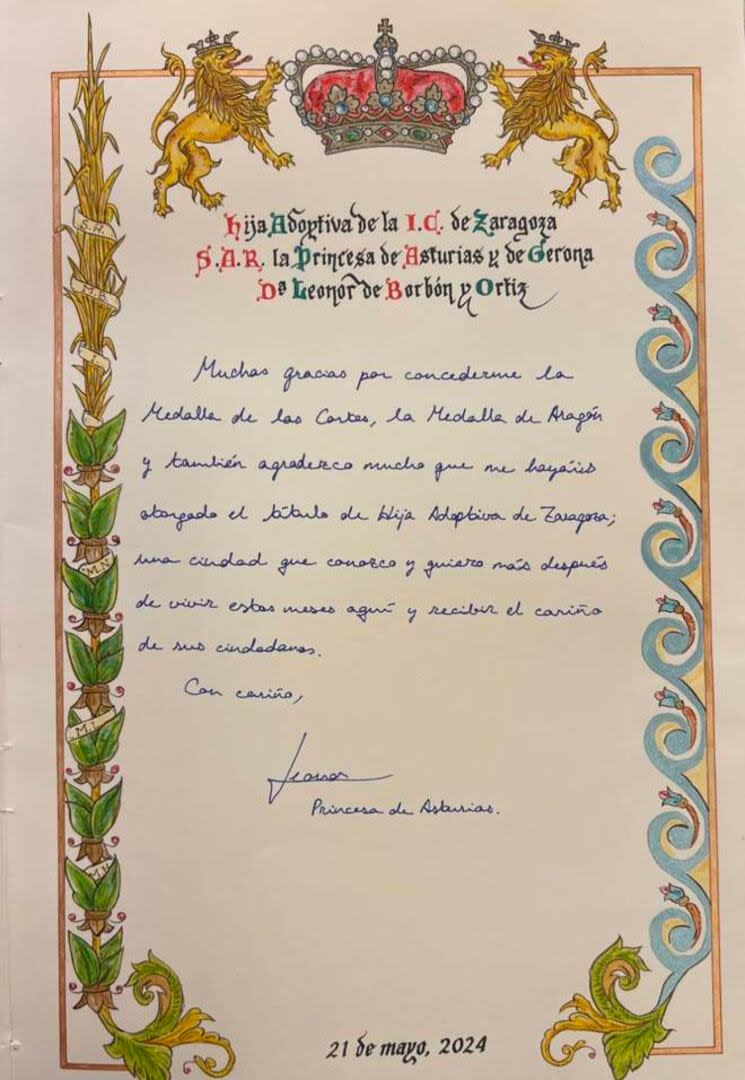 Hija Adoptiva de la I.C. de Zaragoza
S.A.R. la Princesa de Asturias y de Gerona
Dª Leonor de Borbón y Ortiz
Muchas gracias por concederme la
Medalla de las Cortes, la Medalla de Aragón
y también agradezco mucho que me hayáis
otorgado el título de Hija Adoptiva de Zaragoza;
una ciudad que conozco y quiero más después
de vivir estos meses aquí y recibir el cariño
de sus ciudadanos.
Con cariño,
Leonor
Princesa de Asturias.
21 de mayo, 2024
S.H.
M.B.
I.
M.N.
M.L.
M.H.